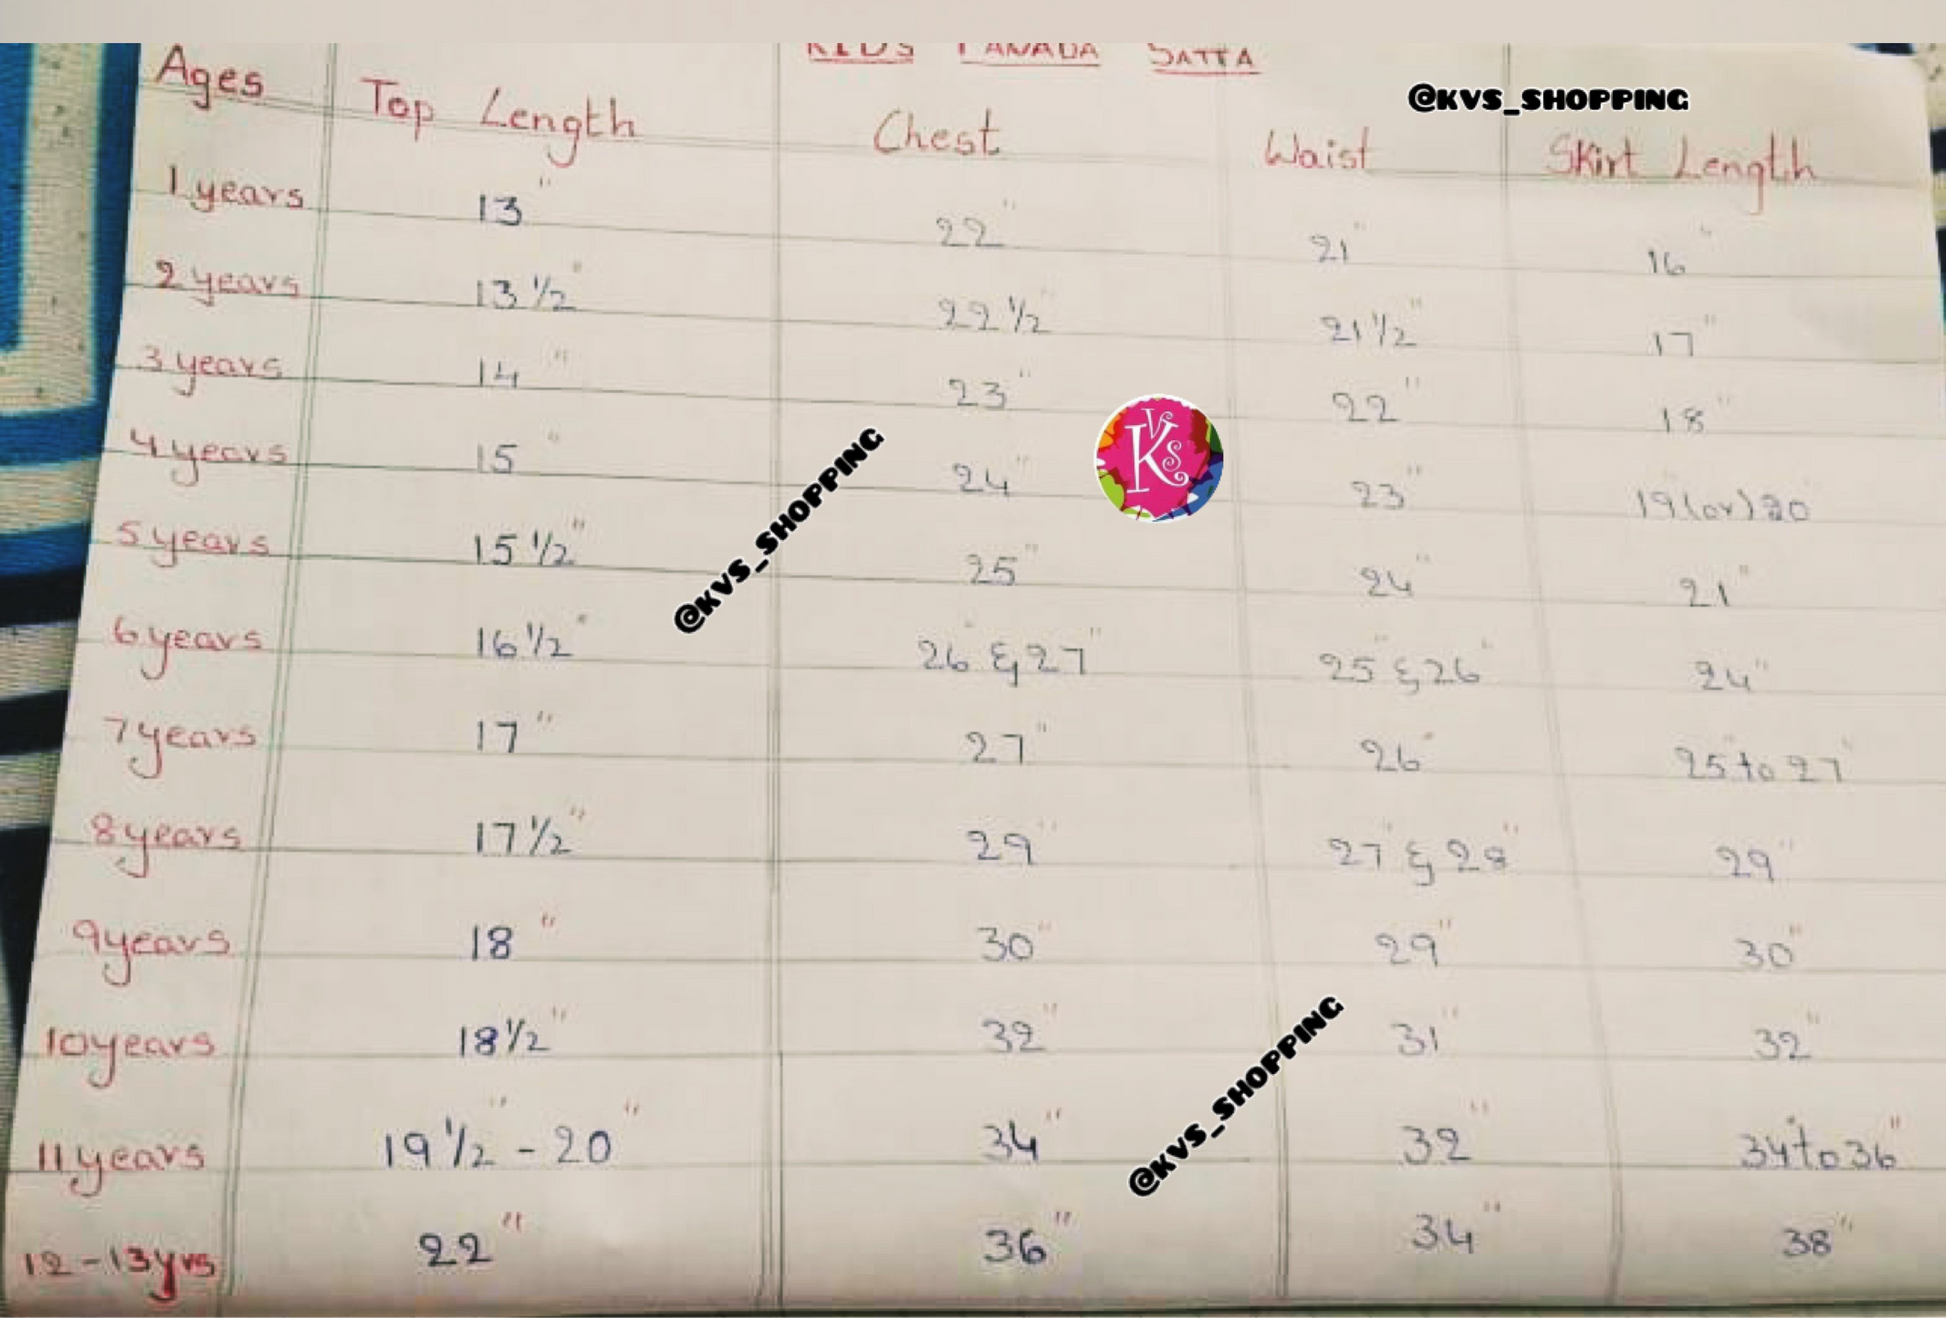 KIDS PAVADA SATTA
@KVS_SHOPPING
Ages Top Length Chest Waist Skirt Length
1 years 13" 22" 21" 16"
2 years 13 1/2" 22 1/2" 21 1/2" 17"
3 years 14" 23" 22" 18"
KVS
4 years 15" 24" 23" 19"(or)20
@KVS_SHOPPING
5 years 15 1/2" 25" 24" 21"
6 years 16 1/2" 26" & 27" 25" & 26" 24"
7 years 17" 27" 26" 25" to 27"
8 years 17 1/2" 29" 27" & 28" 29"
9 years 18" 30" 29" 30"
10 years 18 1/2" 32" 31" 32"
@KVS_SHOPPING
11 years 19 1/2" - 20" 34" 32" 34" to 36"
12-13 yrs 22" 36" 34" 38"